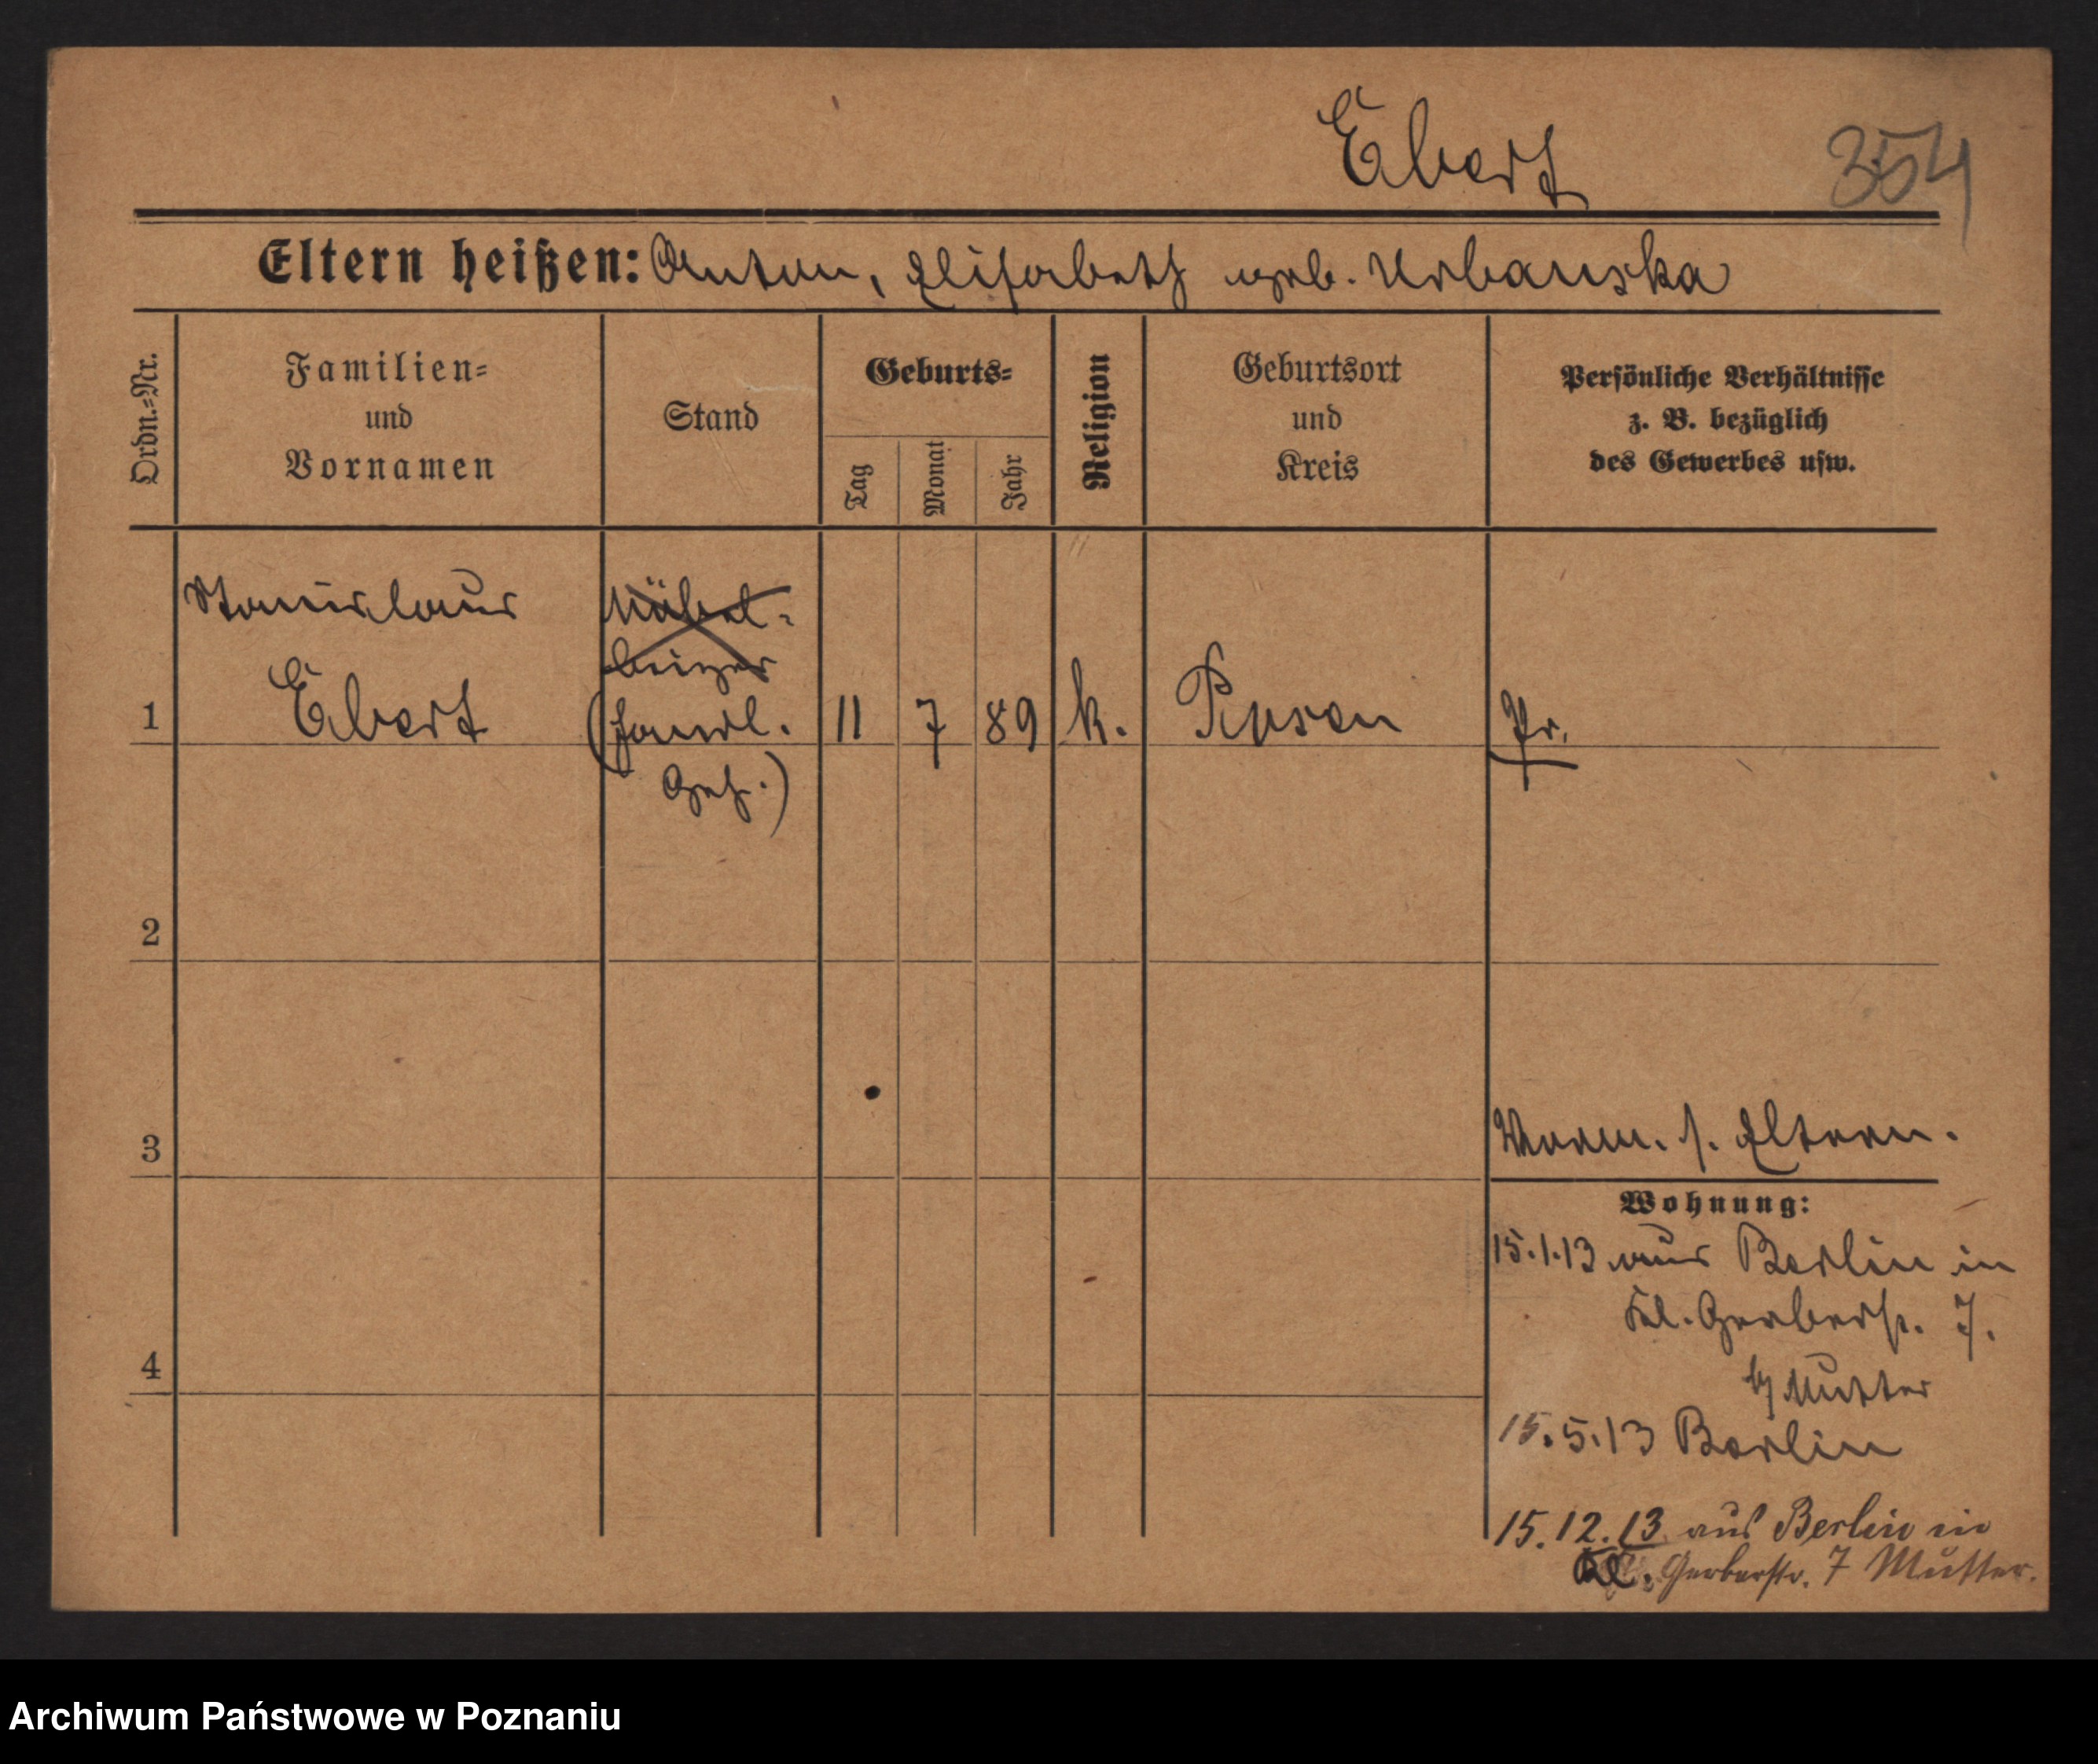 Ebert 354
Eltern heißen: Anton, Elisabeth geb. Urbanska
Ordn.=Nr.
Familien=
und
Vornamen
Stand
Geburts=
Tag
Monat
Jahr
Religion
Geburtsort
und
Kreis
Persönliche Verhältnisse
z. B. bezüglich
des Gewerbes usw.
Stanislaus
Möbel-
beizer
1 Ebert (Handl. 11 7 89 k. Posen Pr.
Geh.)
2
3 Verm. s. Eltern.
Wohnung:
15.1.13 aus Berlin in
Kl. Gerberstr. 7.
4
b/ Mutter
15.5.13 Berlin
15.12.13 aus Berlin in
Kl. Gerberstr. 7 Mutter.
Archiwum Państwowe w Poznaniu